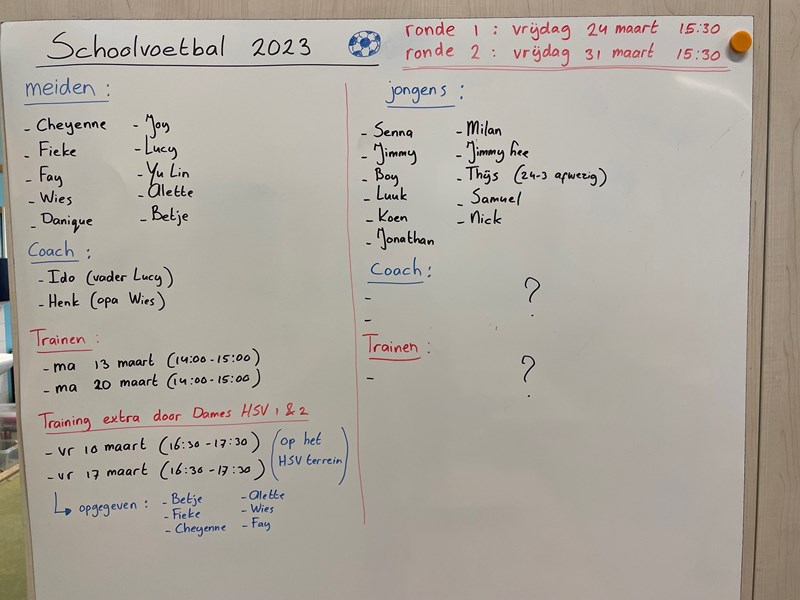 Schoolvoetbal 2023
ronde 1 : vrijdag 24 maart 15:30
ronde 2 : vrijdag 31 maart 15:30
meiden :
- Cheyenne
- Fieke
- Fay
- Wies
- Danique
- Joy
- Lucy
- Yu Lin
- Alette
- Betje
Coach :
- Ido (vader Lucy)
- Henk (opa Wies)
Trainen :
- ma 13 maart (14:00-15:00)
- ma 20 maart (14:00-15:00)
Training extra door Dames HSV 1 & 2
- vr 10 maart (16:30-17:30)
- vr 17 maart (16:30-17:30)
(op het
HSV terrein)
opgegeven :
- Betje
- Fieke
- Cheyenne
- Alette
- Wies
- Fay
jongens :
- Senna
- Jimmy
- Boy
- Luuk
- Koen
- Jonathan
- Milan
- Jimmy hee
- Thijs (24-3 afwezig)
- Samuel
- Nick
Coach :
-
-
?
Trainen :
-
?